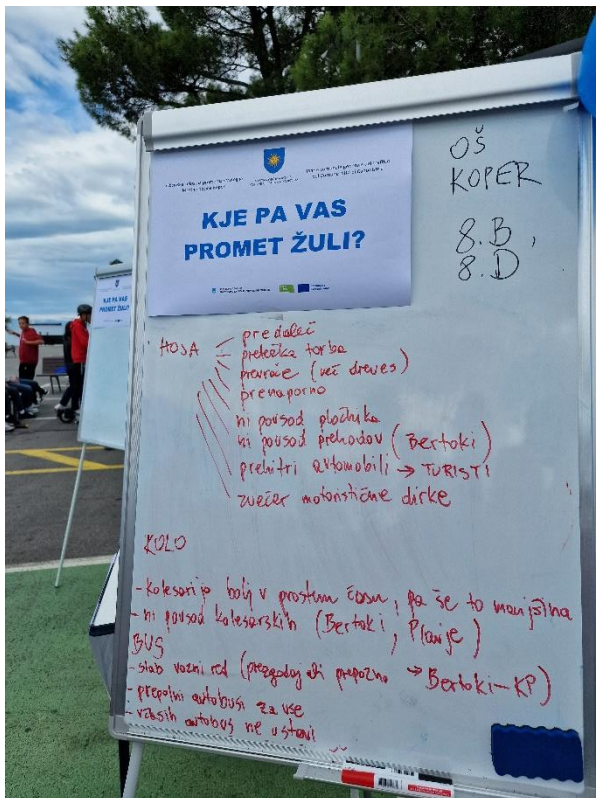 KJE PA VAS
PROMET ŽULI?
OŠ
KOPER
8.B,
8.D
KJE PA VAS
PROMET ŽULI?
HOJA
predaleč
pretežka torba
prevroče (več dreves)
prenaporno
ni povsod pločnika
ni povsod prehodov (Bertoki)
prehitri avtomobili → TURISTI
zvečer motoristične dirke
KOLO
- kolesarijo bolj v prostem času, pa še to manjšina
- ni povsod kolesarskih (Bertoki, Plavje)
BUS
- slab vozni red (prezgodaj ali prepozno → Bertoki-KP)
- prepolni avtobusi za vse
- včasih avtobus ne ustavi